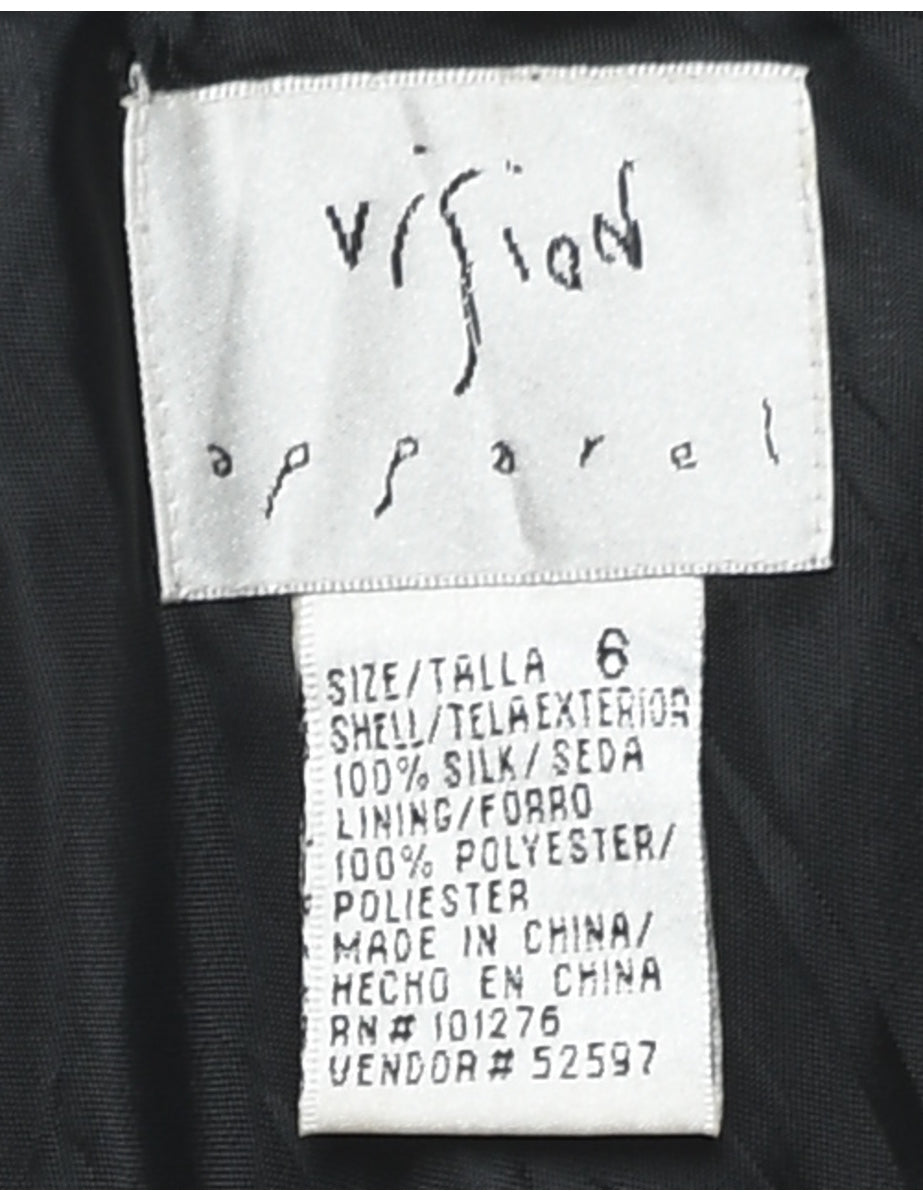 vision
apparel
SIZE/TALLA 6
SHELL/TELA EXTERIOR
100% SILK/SEDA
LINING/FORRO
100% POLYESTER/
POLIESTER
MADE IN CHINA/
HECHO EN CHINA
RN# 101276
VENDOR# 52597